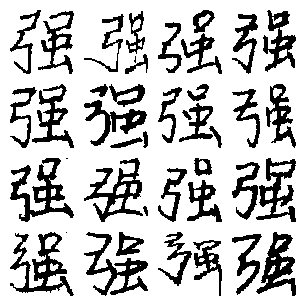 强强强强
强强强强
强强强强
强强强强